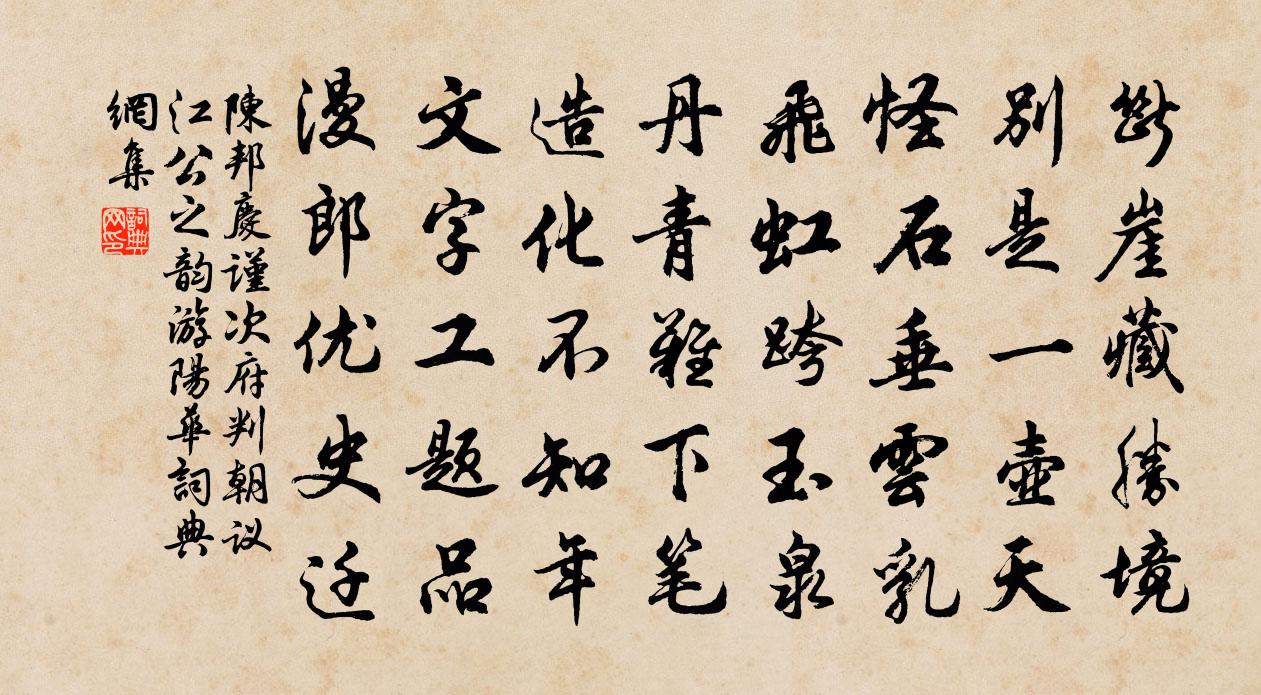 斷崖藏勝境
別是一壺天
怪石垂雲乳
飛虹跨玉泉
丹青難下笔
造化不知年
文字工題品
漫郎优史迁
陳邦慶謹次府判朝议
江公之韵游陽華詞典
網集
詞典网印